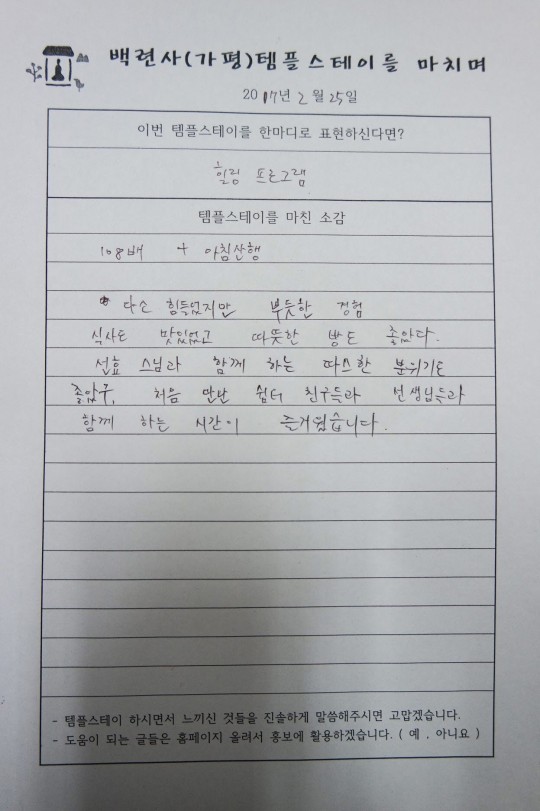 백련사(가평)템플스테이를 마치며
2017년 2월 25일
이번 템플스테이를 한마디로 표현하신다면?
힐링 프로그램
템플스테이를 마친 소감
108배 + 아침산행
다소 힘들었지만 뿌듯한 경험
식사도 맛있었고 따뜻한 방도 좋았다.
선효 스님과 함께 하는 따스한 분위기도
좋았구, 처음 만난 쉼터 친구들과 선생님들과
함께 하는 시간이 즐거웠습니다.
- 템플스테이 하시면서 느끼신 것들을 진솔하게 말씀해주시면 고맙겠습니다.
- 도움이 되는 글들은 홈페이지 올려서 홍보에 활용하겠습니다. ( 예 , 아니요 )